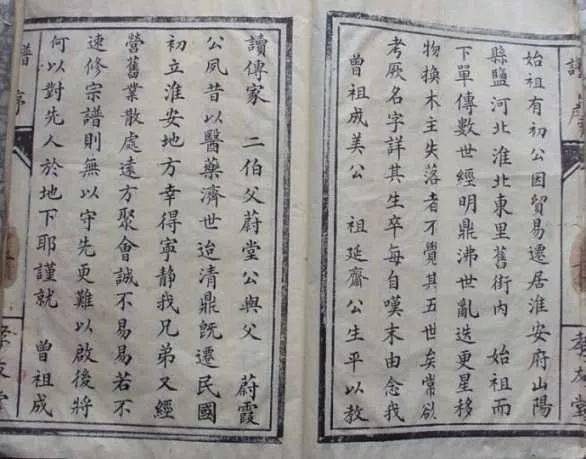 譜序
孝友堂
始祖有初公因貿易遷居淮安府山陽
縣鹽河北淮北東里舊街內 始祖而
下單傳數世經明鼎沸世亂迭更星移
物換木主失落者不覺其五世矣常欲
考厥名字詳其生卒每自嘆末由念我
曾祖成美公 祖延齋公生平以教
讀傳家 二伯父蔚堂公與父 蔚霞
公夙昔以醫藥濟世迨清鼎旣遷民國
初立淮安地方幸得寧靜我兄弟又經
營舊業散處遠方聚會誠不易易若不
速修宗譜則無以守先更難以啟後將
何以對先人於地下耶謹就 曾祖成
譜序
孝友堂